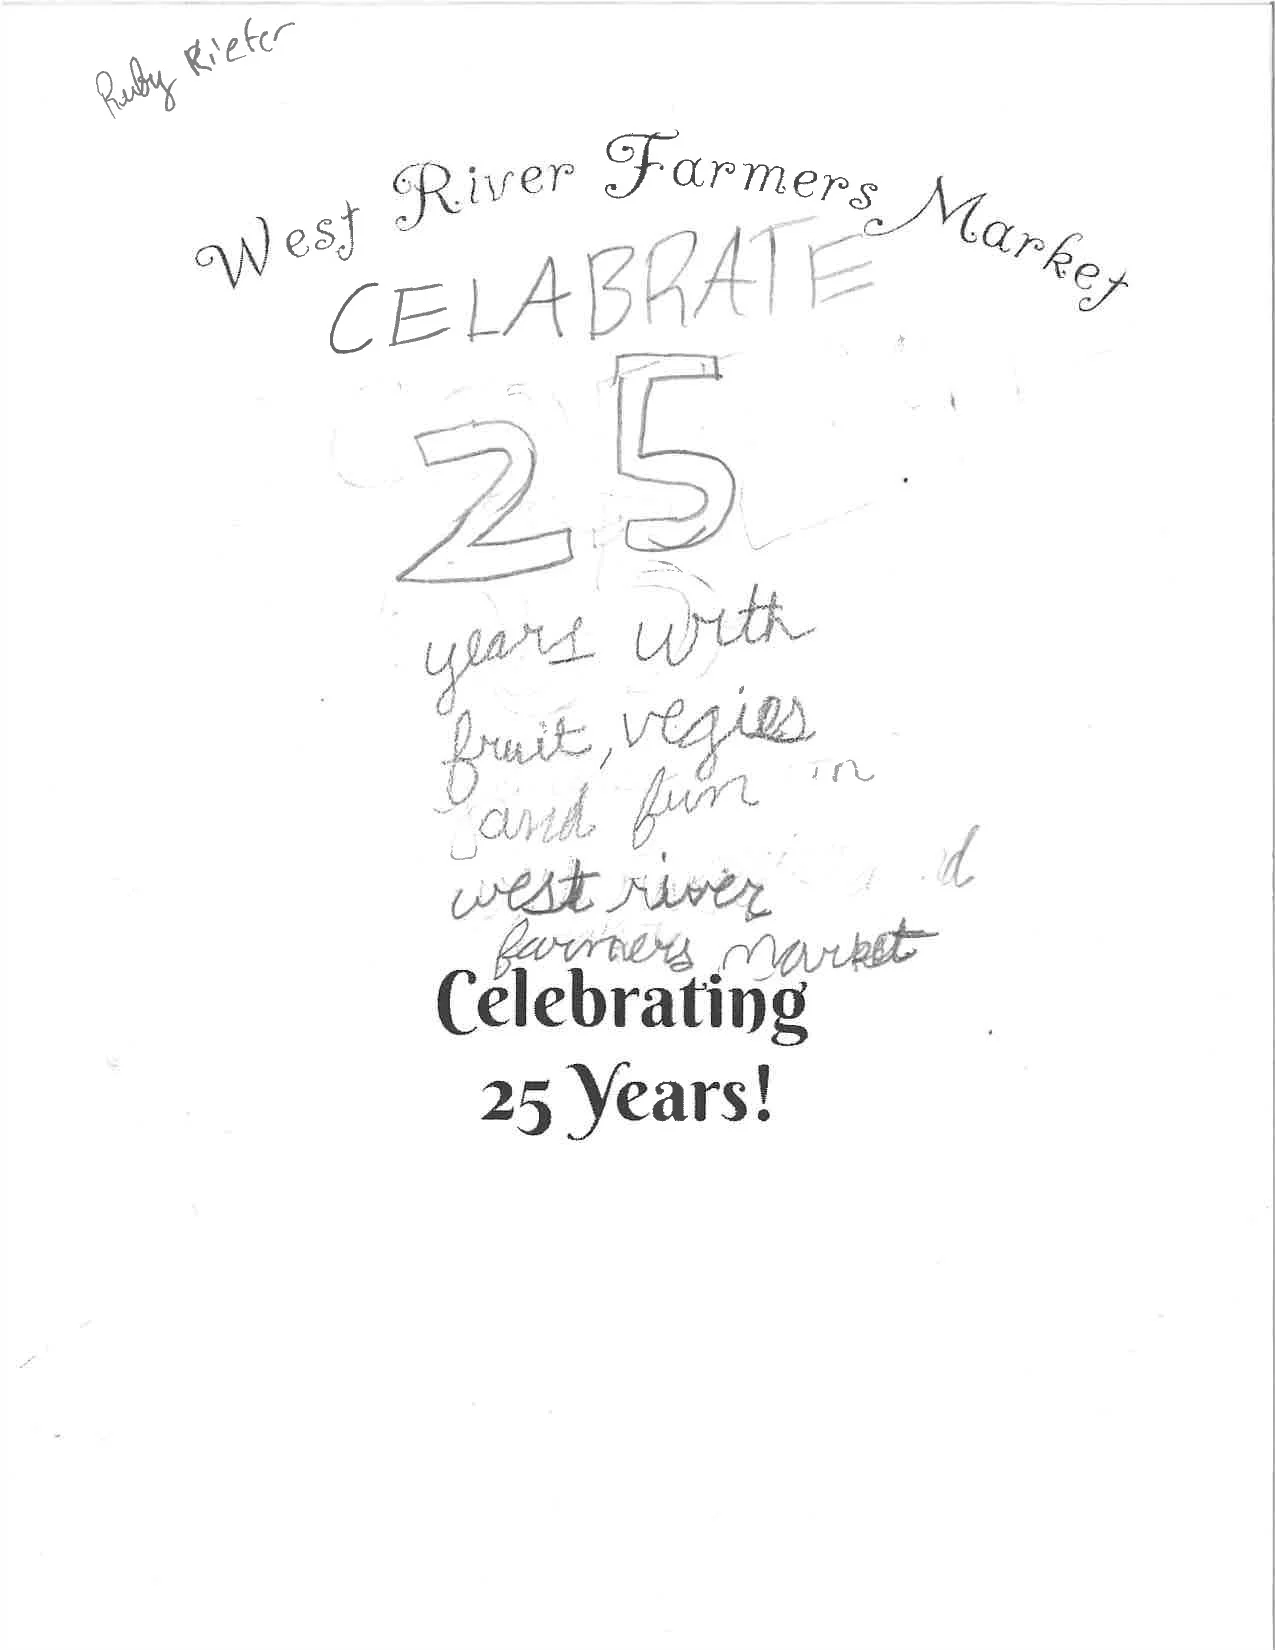 Ruby Rieter
West River Farmers Market
CELABRATE
25
years with
fruit, vegies
and fun in
west river
farmers market
Celebrating
25 Years!